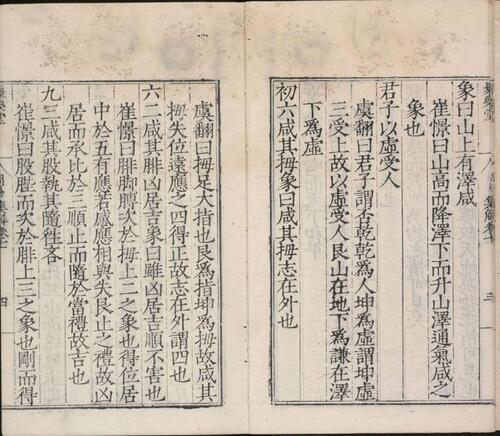 象曰山上有澤咸
崔憬曰山高而降澤下而升山澤通氣咸之
象也
君子以虛受人
虞翻曰君子謂否乾乾為人坤為虛謂坤虛
三受上故以虛受人艮山在地下為謙在澤
下為虛
初六咸其拇象曰咸其拇志在外也
虞翻曰拇足大指也艮為指坤為拇故咸其
拇失位遠應之四得正故志在外謂四也
六二咸其腓凶居吉象曰雖凶居吉順不害也
崔憬曰腓腳膊次於拇上二之象也得位居
中於五有應若感應相與失艮止之禮故凶
居而承比於三順止而隨於當禮故吉也
九三咸其股執其隨往吝
崔憬曰股䏶而次於腓上三之象也剛而得
四